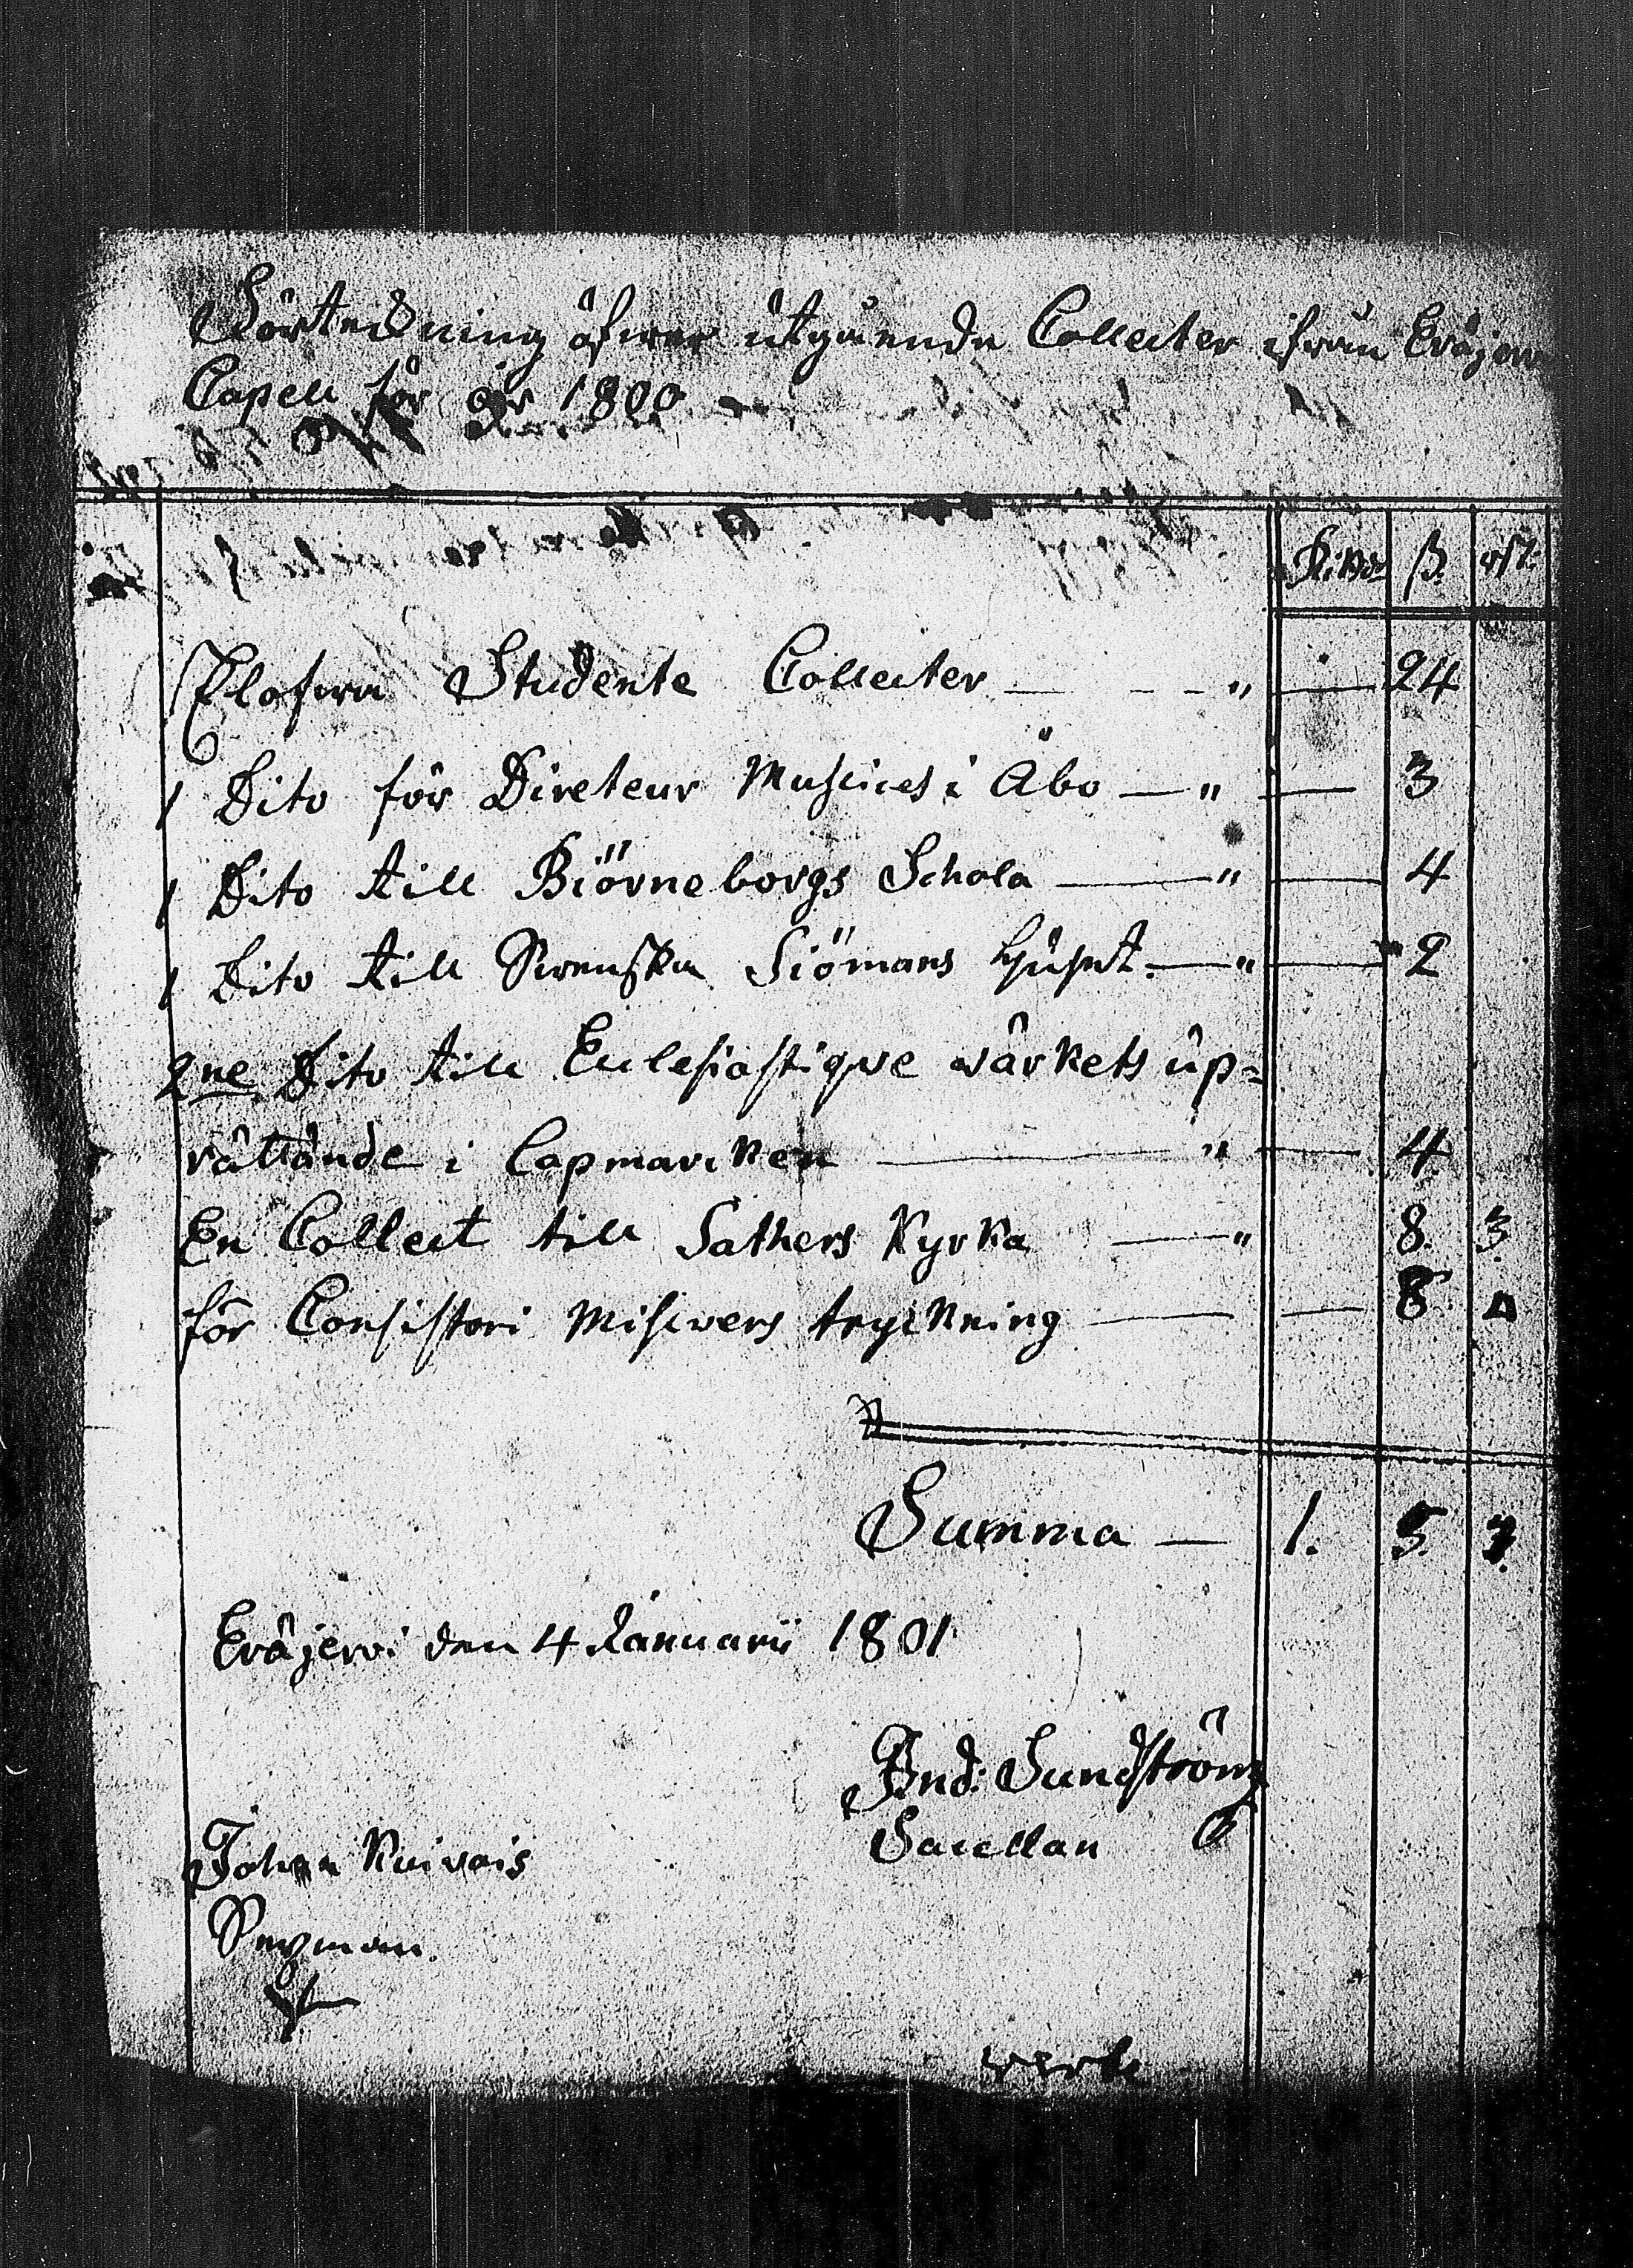 Förteckning öfwer utgående Collecter ifrån Eräjerwi
Capell för år 1800
R:kd: ß. rst:
Elofwa Studente Collecter — - - " — 24
1 Dito för Direteur Musices i Åbo — " — 3
1 Dito till Biörneborgs Schola — " — 4
1 Dito till Swenska Siömans huset — " — 2
2ne Dito till Ecclesiastique wärkets up=
rättände i Lapmarcken — " — 4.
En Collect till Sathers Kyrka — " 8. 3.
för Consistori Missivers tryckning — — 8
Summa — 1. 5. 3.
Eräjerwi den 4 Januarii 1801
And: Sundström
Sacellan
Johan
Sexman.